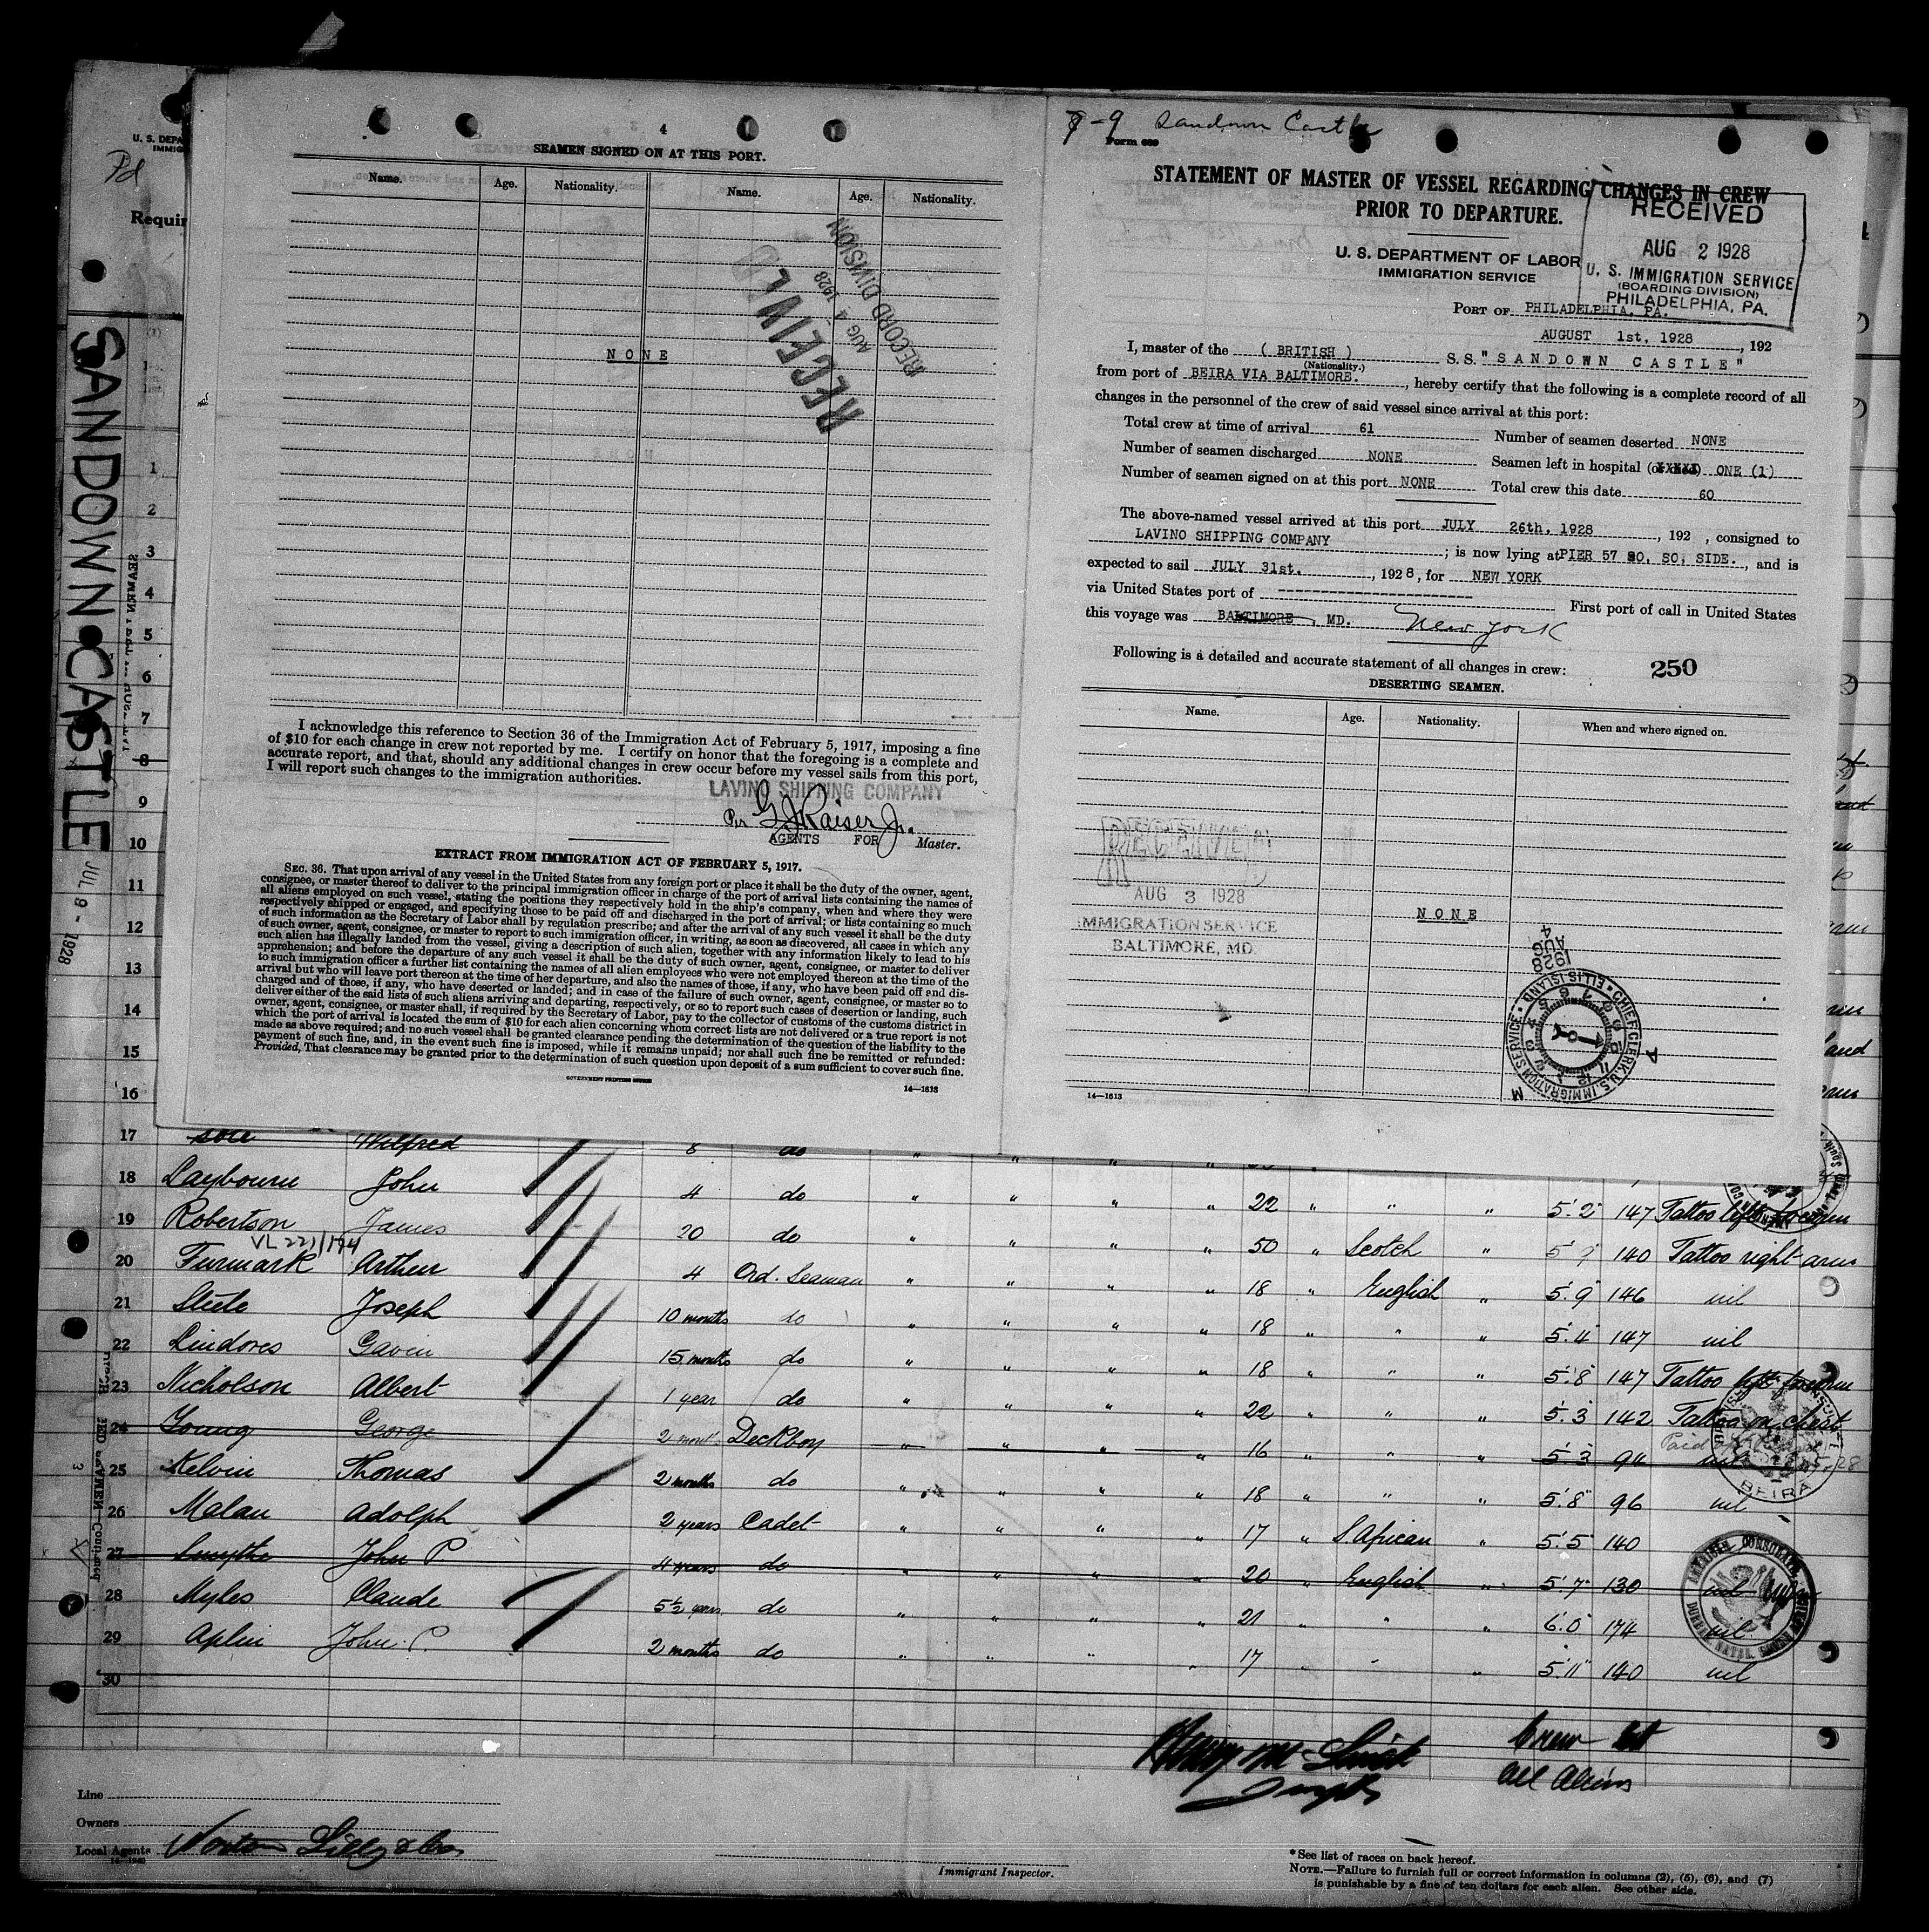 U. S. DEPA
IMMIG
Pd
Requir
SANDOWN CASTLE
JUL 9 - 1928
4
SEAMEN SIGNED ON AT THIS PORT.
Name. Age. Nationality. Name. Age. Nationality.
NONE
RECEIVED
AUG 4 1928
RECORD DIVISION
I acknowledge this reference to Section 36 of the Immigration Act of February 5, 1917, imposing a fine
of $10 for each change in crew not reported by me. I certify on honor that the foregoing is a complete and
accurate report, and that, should any additional changes in crew occur before my vessel sails from this port,
I will report such changes to the immigration authorities.
LAVINO SHIPPING COMPANY
Per G. J. Kaiser Jr.
AGENTS FOR Master.
EXTRACT FROM IMMIGRATION ACT OF FEBRUARY 5, 1917.
SEC. 36. That upon arrival of any vessel in the United States from any foreign port or place it shall be the duty of the owner, agent,
consignee, or master thereof to deliver to the principal immigration officer in charge of the port of arrival lists containing the names of
all aliens employed on such vessel, stating the positions they respectively hold in the ship's company, when and where they were
respectively shipped or engaged, and specifying those to be paid off and discharged in the port of arrival; or lists containing so much
of such information as the Secretary of Labor shall by regulation prescribe; and after the arrival of any such vessel it shall be the duty
of such owner, agent, consignee, or master to report to such immigration officer, in writing, as soon as discovered, all cases in which any
such alien has illegally landed from the vessel, giving a description of such alien, together with any information likely to lead to his
apprehension; and before the departure of any such vessel it shall be the duty of such owner, agent, consignee, or master to deliver
to such immigration officer a further list containing the names of all alien employees who were not employed thereon at the time of the
arrival but who will leave port thereon at the time of her departure, and also the names of those, if any, who have been paid off and dis-
charged and of those, if any, who have deserted or landed; and in case of the failure of such owner, agent, consignee, or master so to
deliver either of the said lists of such aliens arriving and departing, respectively, or so to report such cases of desertion or landing, such
owner, agent, consignee, or master shall, if required by the Secretary of Labor, pay to the collector of customs of the customs district in
which the port of arrival is located the sum of $10 for each alien concerning whom correct lists are not delivered or a true report is not
made as above required; and no such vessel shall be granted clearance pending the determination of the question of the liability to the
payment of such fine, and, in the event such fine is imposed, while it remains unpaid; nor shall such fine be remitted or refunded:
Provided, That clearance may be granted prior to the determination of such question upon deposit of a sum sufficient to cover such fine.
GOVERNMENT PRINTING OFFICE
14—1613
7-9 Sandown Castle
Form 689
STATEMENT OF MASTER OF VESSEL REGARDING CHANGES IN CREW
PRIOR TO DEPARTURE.
U. S. DEPARTMENT OF LABOR
IMMIGRATION SERVICE
RECEIVED
AUG 2 1928
U. S. IMMIGRATION SERVICE
(BOARDING DIVISION)
PHILADELPHIA, PA.
PORT OF PHILADELPHIA. PA.
AUGUST 1st. 1928, 192
I, master of the (BRITISH) S.S. "SANDOWN CASTLE"
(Nationality.)
from port of BEIRA VIA BALTIMORE., hereby certify that the following is a complete record of all
changes in the personnel of the crew of said vessel since arrival at this port:
Total crew at time of arrival 61 Number of seamen deserted NONE
Number of seamen discharged NONE Seamen left in hospital (or died) ONE (1)
Number of seamen signed on at this port NONE Total crew this date 60
The above-named vessel arrived at this port JULY 26th. 1928, 192 , consigned to
LAVINO SHIPPING COMPANY; is now lying at PIER 57 SO. SO. SIDE., and is
expected to sail JULY 31st., 1928, for NEW YORK
via United States port of ----------------------- First port of call in United States
this voyage was BALTIMORE, MD. New York
Following is a detailed and accurate statement of all changes in crew: 250
DESERTING SEAMEN.
Name. Age. Nationality. When and where signed on.
RECEIVED
AUG 3 1928
IMMIGRATION SERVICE
BALTIMORE, MD.
NONE
1928 AUG 4
CHIEF CLERK, U.S. IMMIGRATION SERVICE • ELLIS ISLAND
14—1613
1
2
3
4
5
6
7
8
9
10
11
12
13
14
15
16
17 Wilfred 8 do
18 Laybourn John 4 do " " " " 22 " " " 5'2" 147 Tattoo left forearm
19 Robertson James 20 do " " " " 50 " Scotch " 140 Tattoo right arm
VL 221/194
20 Furmark Arthur 4 Ord. Seaman " " " " 18 " English " 5'9" 146 nil
21 Steele Joseph 10 months do " " " " 18 " " " 5'4" 147 nil
22 Lindores Gavin 15 months do " " " " 18 " " " 5'8" 147 Tattoo left forearm
23 Nicholson Albert 1 year do " " " " 22 " " " 5'3" 142 Tattoo on chest
24 Young George 2 months Deckboy " " " " 16 " " " 5'3" 94 nil
25 Kelvin Thomas 2 months do " " " " 18 " " " 5'8" 96 nil
26 Malan Adolph 2 years Cadet " " " " 17 " S African " 5'5" 140
27 Smythe John P 4 years do " " " " 20 " English " 5'7" 130 nil
28 Myles Claude 5½ years do " " " " 21 " " " 6'0" 174 nil
29 Aplin John P. 2 months do " " " " 17 " " " 5'11" 140 nil
30
BEIRA
AMERICAN CONSULATE
DURBAN, NATAL, SOUTH AFRICA
Crew list
All Aliens
Line
Owners
Local Agents Norton Lilly & Co
Immigrant Inspector.
* See list of races on back hereof.
NOTE.—Failure to furnish full or correct information in columns (2), (5), (6), and (7)
is punishable by a fine of ten dollars for each alien. See other side.